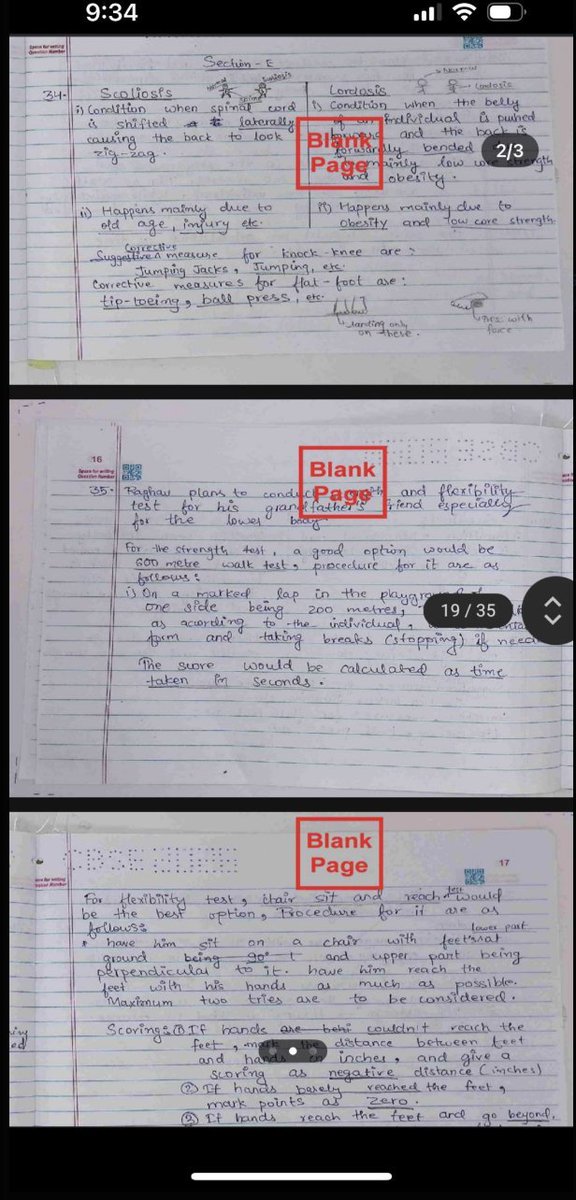 9:34
Space for writing
Question Number
Section - E
Normal
Scoliosis
Spine
Normal
Lordosis
34.
Scoliosis
Lordosis
i) Condition when spinal cord
is shifted laterally
causing the back to look
zig-zag.
i) Condition when the belly
of an individual is pushed
and the back is
forwardly bended
mainly low core strength
and obesity.
Blank
Page
2/3
ii) Happens mainly due to
old age, injury etc.
ii) Happens mainly due to
obesity and low core strength.
Corrective
Suggestive measure for knock-knee are :
Jumping Jacks, Jumping, etc.
Corrective measures for flat-foot are :
tip-toeing, ball press, etc.
standing only
on these.
Press with
force
16
Space for writing
Question Number
Blank
Page
35.
Raghav plans to conduct and flexibility
test for his grandfather's friend especially
for the lower body
For the strength test, a good option would be
600 metre walk test, procedure for it are as
follows :
i) On a marked lap in the
one side being 200 metres,
as acording to the individual,
form and taking breaks (stopping) if need
19 / 35
The score would be calculated as time
taken in seconds.
Blank
Page
17
For flexibility test, chair sit and reach test would
be the best option, Procedure for it are as
follows:
have him sit on a chair with feet's lower part at
ground being 90° and upper part being
perpendicular to it. have him reach the
feet with his hands as much as possible.
Maximum two tries are to be considered.
Scoring: ① If hands are behi couldn't reach the
feet, mark the distance between feet
and hands in inches, and give a
scoring as negative distance (inches)
② If hands barely reached the feet,
mark points as zero.
③ If hands reach the feet and go beyond,